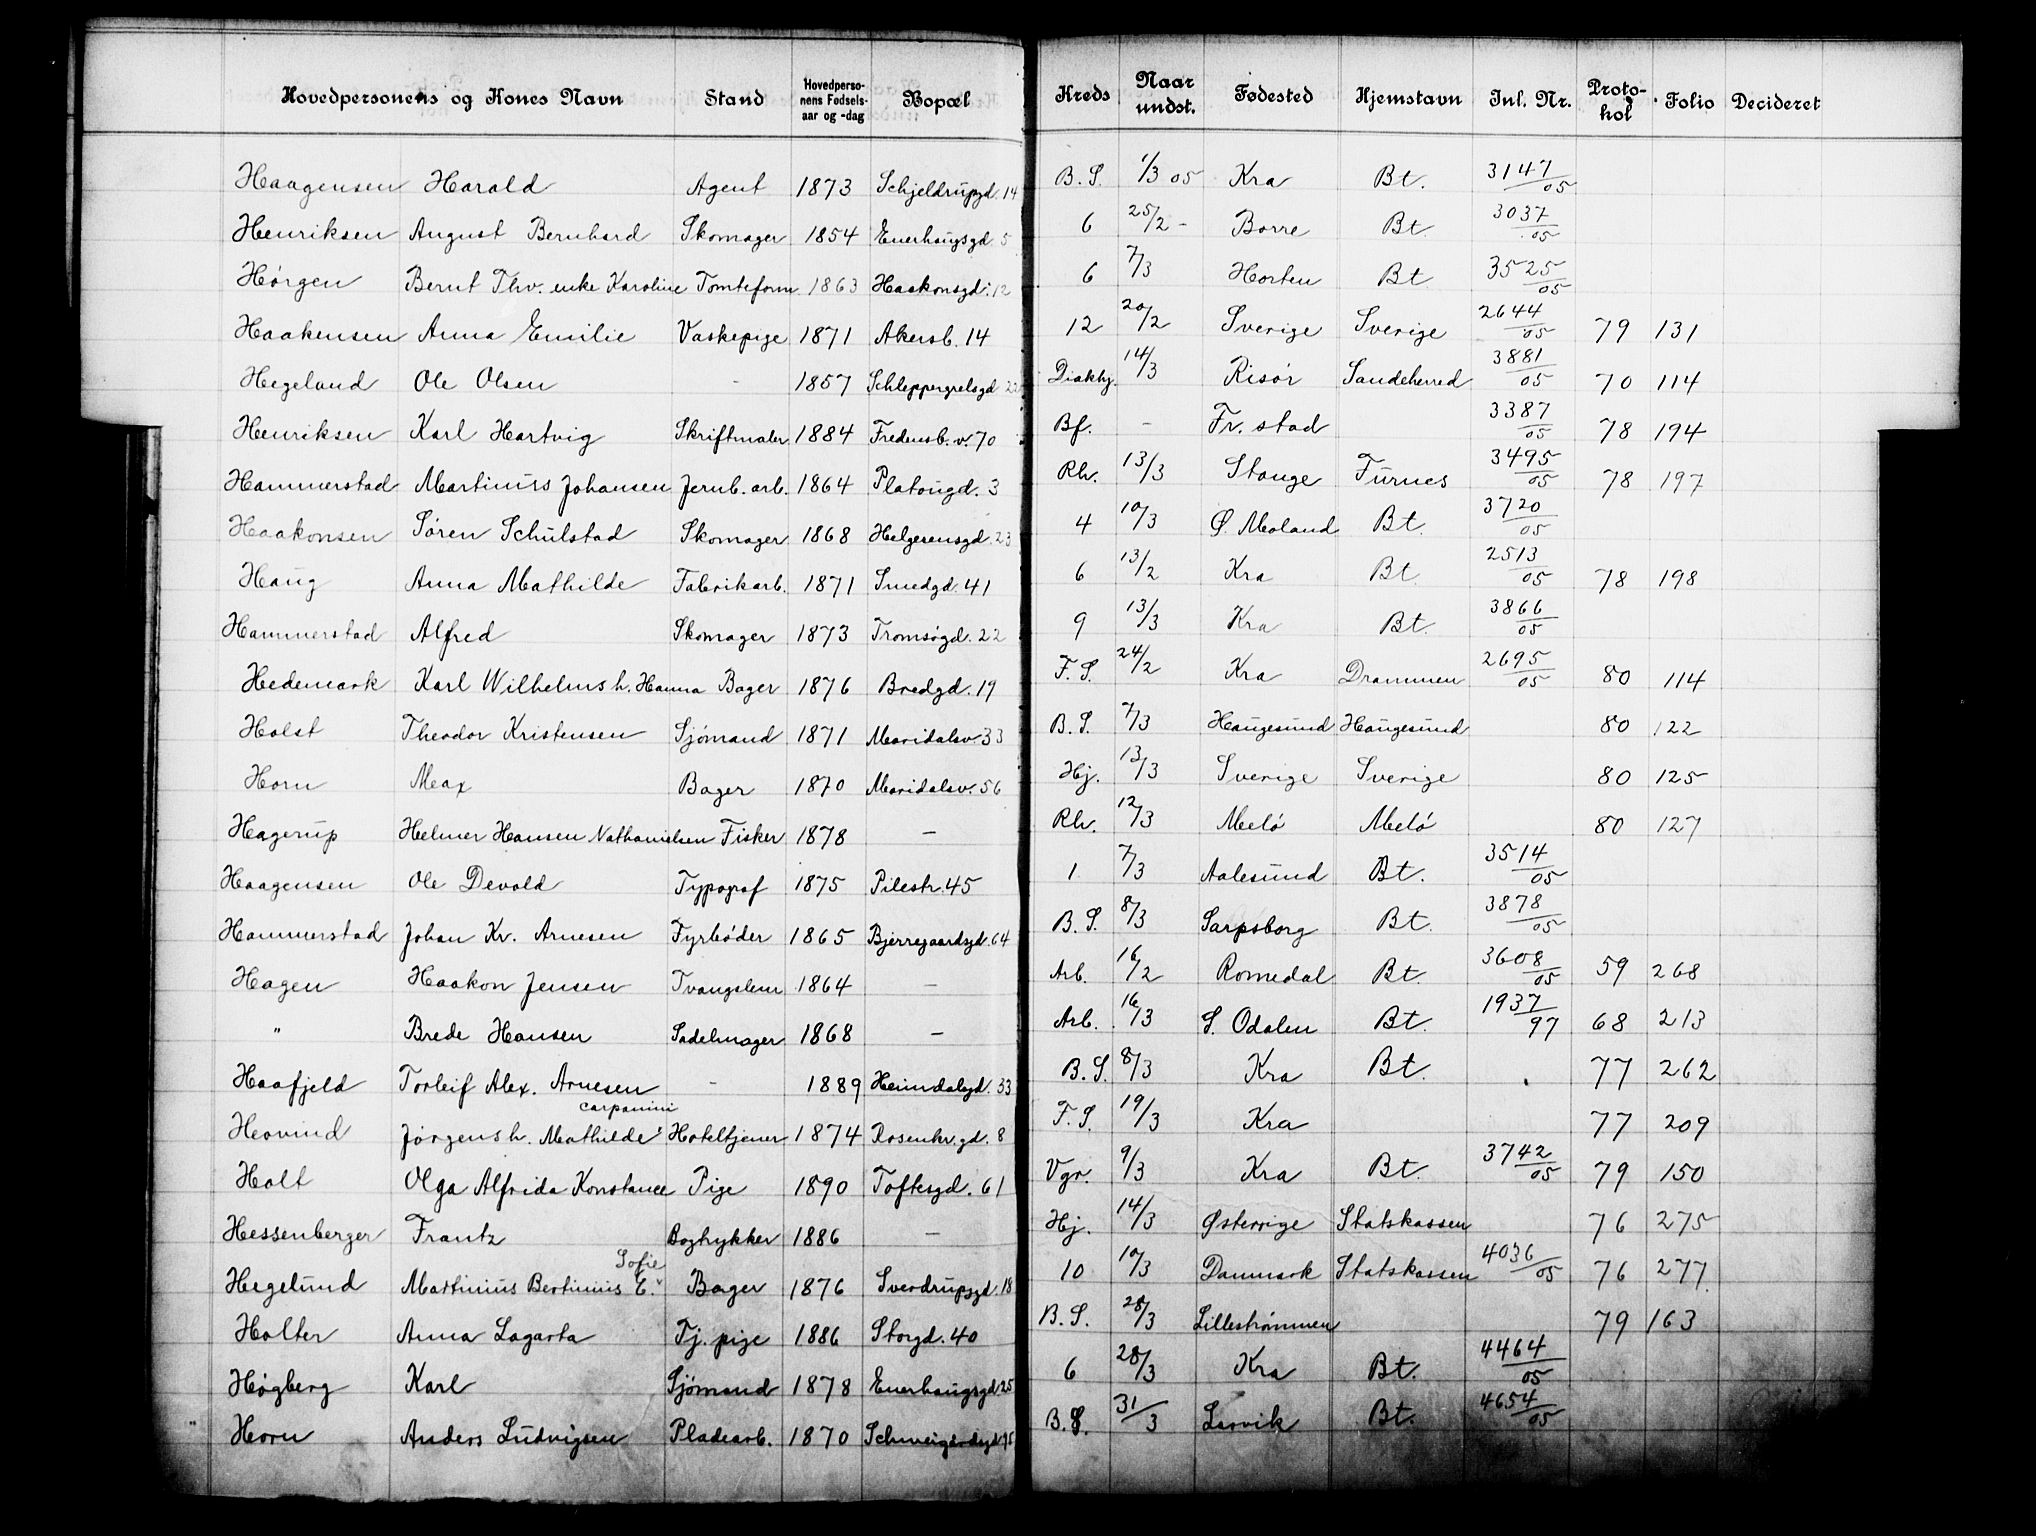 Hovedpersonens og Kones Navn | Stand | Hovedpersonens Fødselsaar og -dag | Bopæl | Kreds | Naar undst. | Fødested | Hjemstavn | Inl. Nr. | Protokol | Folio | Decideret
Haagensen Harald Agent 1873 Schjeldrupgd. 14 B. S. 1/3 05 Kra Bt. 3147/05
Henriksen August Bernhard Skomager 1854 Enerhaugsgd 5 6 25/2 - Borre Bt. 3037/05
Hørgen Bernt Thv. enke Karoline Tomteform 1863 Haakonsgd. 12 6 7/3 Horten Bt 3525/05
Haakensen Anna Emilie Vaskepige 1871 Akersb. 14 12 20/2 Sverige Sverige 2644/05 79 131
Hegeland Ole Olsen - 1857 Schleppergrelsgd 22 Diakhj. 14/3 Risør Sandeherred 3881/05 70 114
Henriksen Karl Hartvig Skriftmaler 1884 Fredensb. v. 70 Bf. - Fr. stad 3387/05 78 194
Hammerstad Martinius Johansen Jernb. arb. 1864 Platougd. 3 Rh. 13/3 Stange Furnes 3495/05 78 197
Haakonsen Søren Schulstad Skomager 1868 Helgerensgd. 23 4 10/3 Ø. Moland Bt. 3720/05
Haug Anna Mathilde Fabrikarb. 1871 Smedgd. 41 6 13/2 Kra Bt. 2513/05 78 198
Hammerstad Alfred Skomager 1873 Tromsøgd. 22 9 13/3 Kra Bt. 3866/05
Hedemark Karl Wilhelms h. Hanna Bager 1876 Bredgd. 19 F. S. 24/2 Kra Drammen 2695/05 80 114
Holst Theodor Kristensen Sjømand 1871 Maridalsv. 33 B. S. 7/3 Haugesund Haugesund 80 122
Horn Max Bager 1870 Maridalsv. 56 Hj. 13/3 Sverige Sverige 80 125
Hagerup Helmer Hansen Nathanielsen Fisker 1878 - Rh. 12/3 Melø Melø 80 127
Haagensen Ole Devold Typograf 1875 Pilestr. 45 1 7/3 Aalesund Bt. 3514/05
Hammerstad Johan Kr. Arnesen Fyrbøder 1865 Bjerregaardsgd. 64 B. S. 8/3 Sarpsborg Bt. 3878/05
Hagen Haakon Jensen Tvangslem 1864 - Arb. 16/2 Romedal Bt. 3608/05 59 268
" Brede Hansen Sadelmager 1868 - Arb. 16/3 S. Odalen Bt. 1937/97 68 213
Haafjeld Torleif Alex. Arnesen - 1889 Heimdalsgd. 33 B. S. 8/3 Kra Bt. 77 262
carpanini
Heovind Jørgens h. Mathilde Hoteltjener 1874 Rosenkr. gd. 8 F. S. 19/3 Kra 77 209
Holt Olga Alfrida Konstance Pige 1890 Toftesgd. 61 Vgr. 9/3 Kra Bt. 3742/05 79 150
Hessenberger Frantz Bogtrykker 1886 - Hj. 14/3 Østerrige Statskassen 76 275
Sofie
Hegelund Martinius Bertinius E. Bager 1876 Sverdrupsgd. 18 10 10/3 Danmark Statskassen 4036/05 76 277
Holter Anna Lagarta Tj. pige 1886 Storgd. 40 B. S. 28/3 Lillestrømmen 79 163
Høgberg Karl Sjømand 1878 Enerhaugsgd 25 6 28/3 Kra Bt. 4464/05
Horn Anders Ludvigsen Pladearb. 1870 Schweigårdsgd 95 B. S. 31/3 Larvik Bt. 4654/05